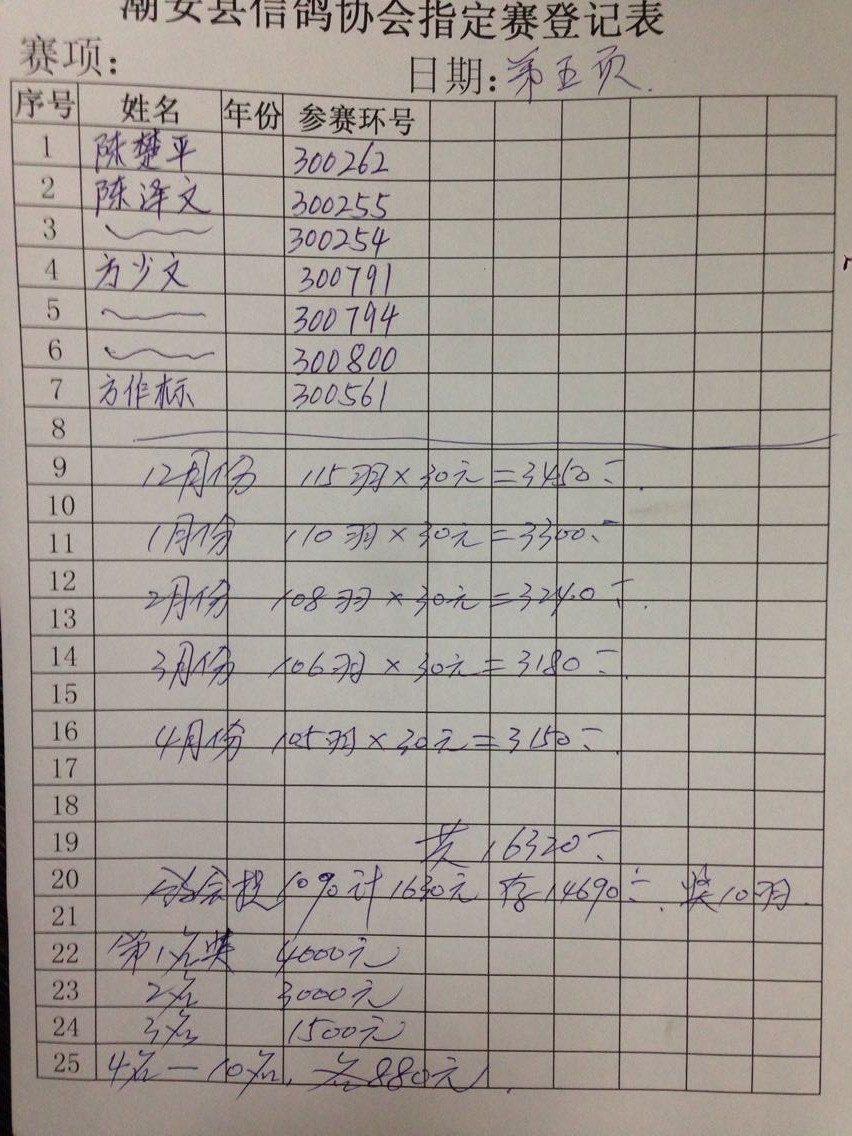 潮安县信鸽协会指定赛登记表
赛项: 日期: 第五页.
序号 姓名 年份 参赛环号
1 陈楚平 300262
2 陈泽文 300255
3 300254
4 方少文 300791
5 300794
6 300800
7 方作标 300561
8
9 12月份 115羽×30元=3450元.
10
11 1月份 110羽×30元=3300元
12 2月份 108羽×30元=3240元.
13
14 3月份 106羽×30元=3180元.
15
16 4月份 105羽×30元=3150元.
17
18
19 共16320元
20 协会提10%计1630元 存14690元. 奖10羽.
21
22 第1名奖 4000元
23 2名 3000元
24 3名 1500元
25 4名—10名, 名880元.